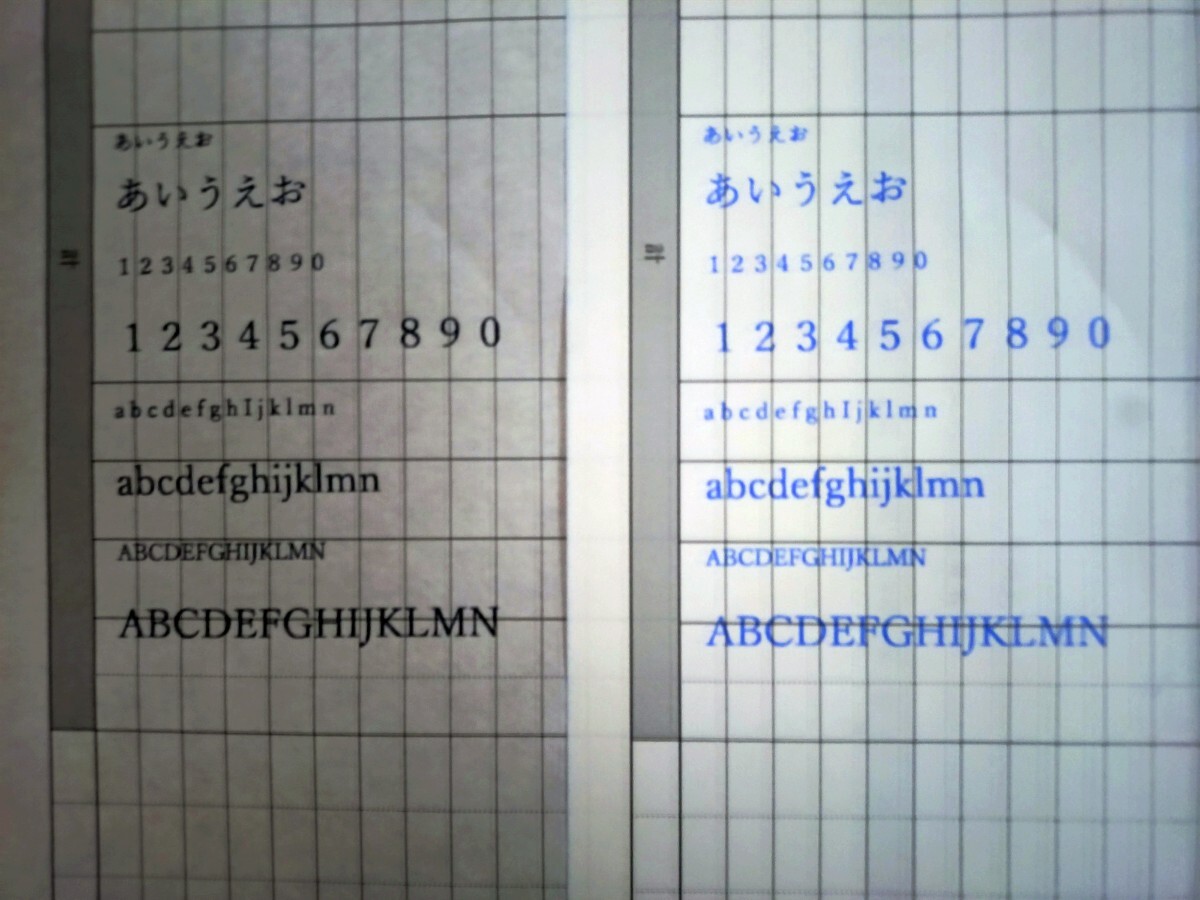 計
あいうえお
あいうえお
1 2 3 4 5 6 7 8 9 0
1 2 3 4 5 6 7 8 9 0
a b c d e f g h I j k l m n
abcdefghijklmn
ABCDEFGHIJKLMN
ABCDEFGHIJKLMN
計
あいうえお
あいうえお
1 2 3 4 5 6 7 8 9 0
1 2 3 4 5 6 7 8 9 0
a b c d e f g h I j k l m n
abcdefghijklmn
ABCDEFGHIJKLMN
ABCDEFGHIJKLMN